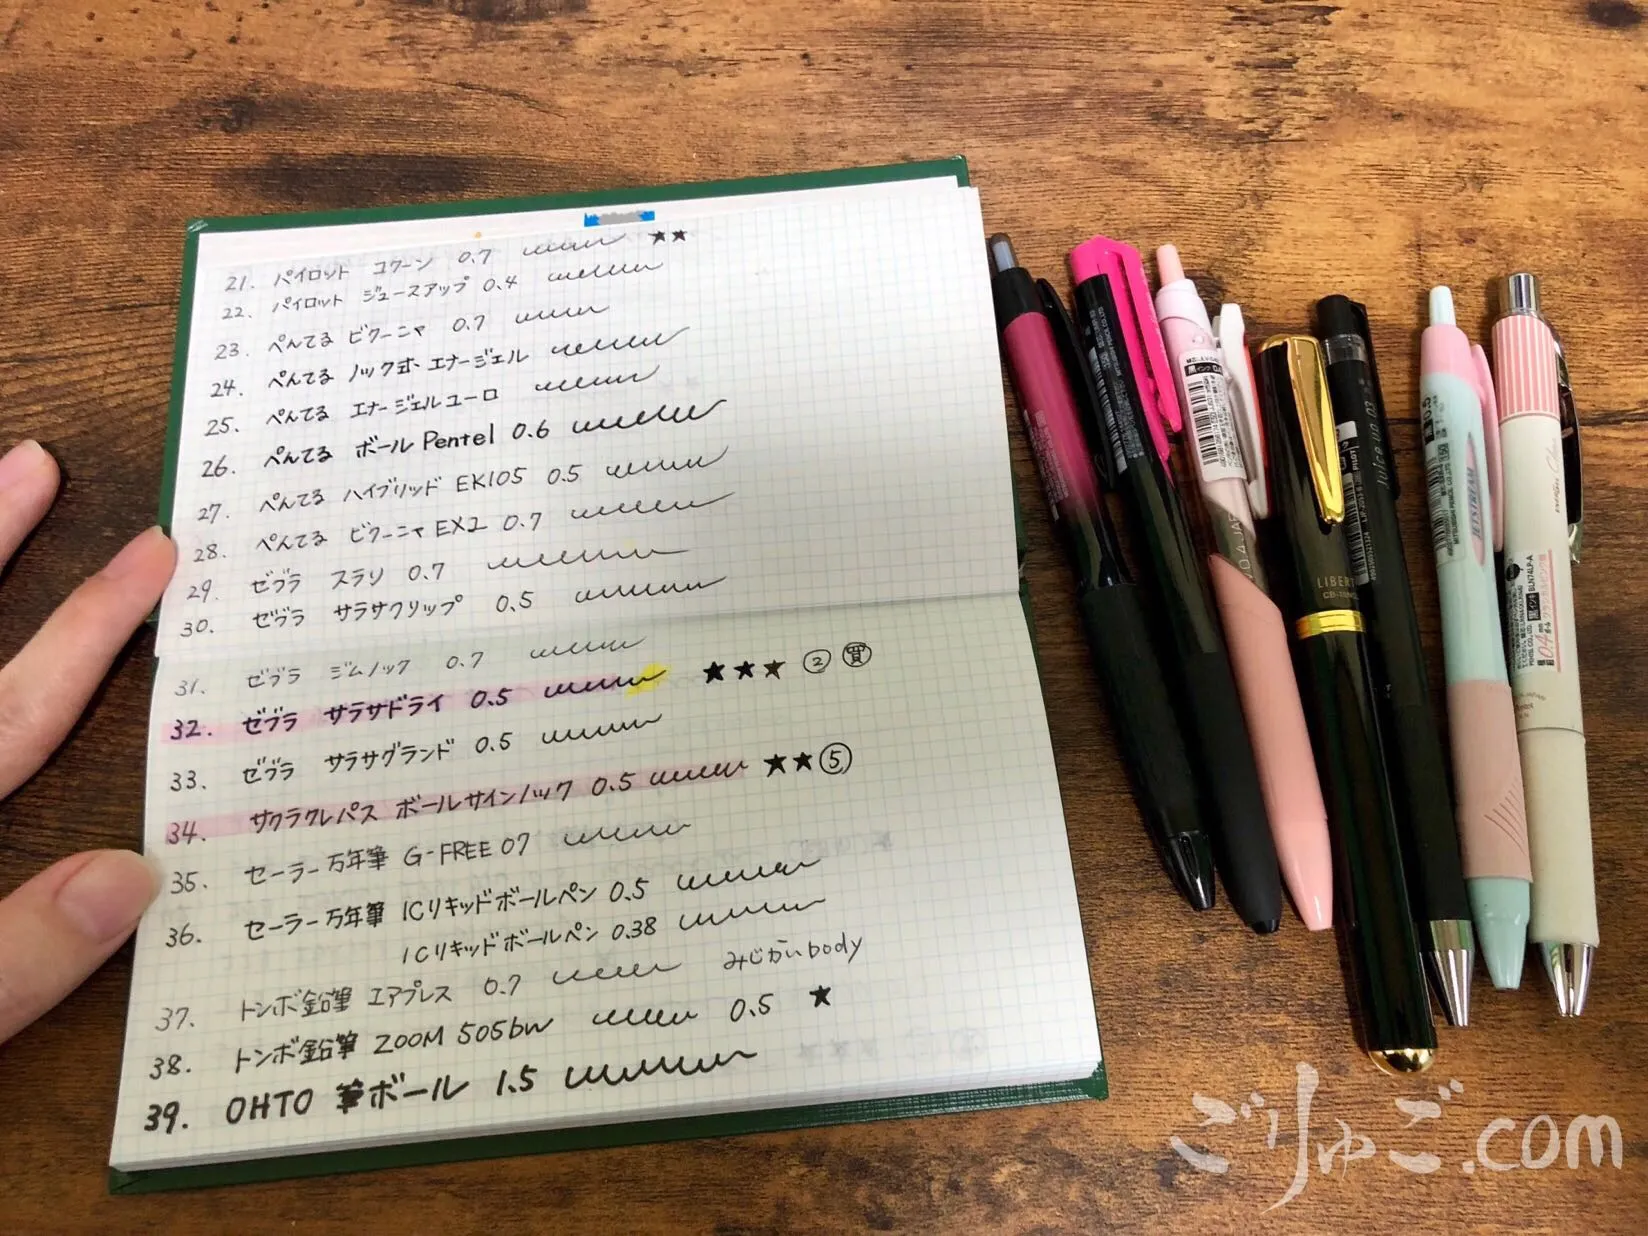 21. パイロット コクーン 0.7 ★★
22. パイロット ジュースアップ 0.4
23. ぺんてる ビクーニャ 0.7
24. ぺんてる ノック式 エナージェル
25. ぺんてる エナージェルユーロ
26. ぺんてる ボール Pentel 0.6
27. ぺんてる ハイブリッド EK105 0.5
28. ぺんてる ビクーニャ EX2 0.7
29. ゼブラ スラリ 0.7
30. ゼブラ サラサクリップ 0.5
31. ゼブラ ジムノック 0.7
32. ゼブラ サラサドライ 0.5 ★★★ ② 買
33. ゼブラ サラサグランド 0.5
34. サクラクレパス ボールサインノック 0.5 ★★⑤
35. セーラー万年筆 G-FREE 07
36. セーラー万年筆 ICリキッドボールペン 0.5
ICリキッドボールペン 0.38
37. トンボ鉛筆 エアプレス 0.7 みじかいbody
38. トンボ鉛筆 ZOOM 505bw 0.5 ★
39. OHTO 筆ボール 1.5
LIBERT
Juice up 03
PILOT
JETSTREAM
0.5
黒インク BLN74LP-A
0.4
ごりゅご.com